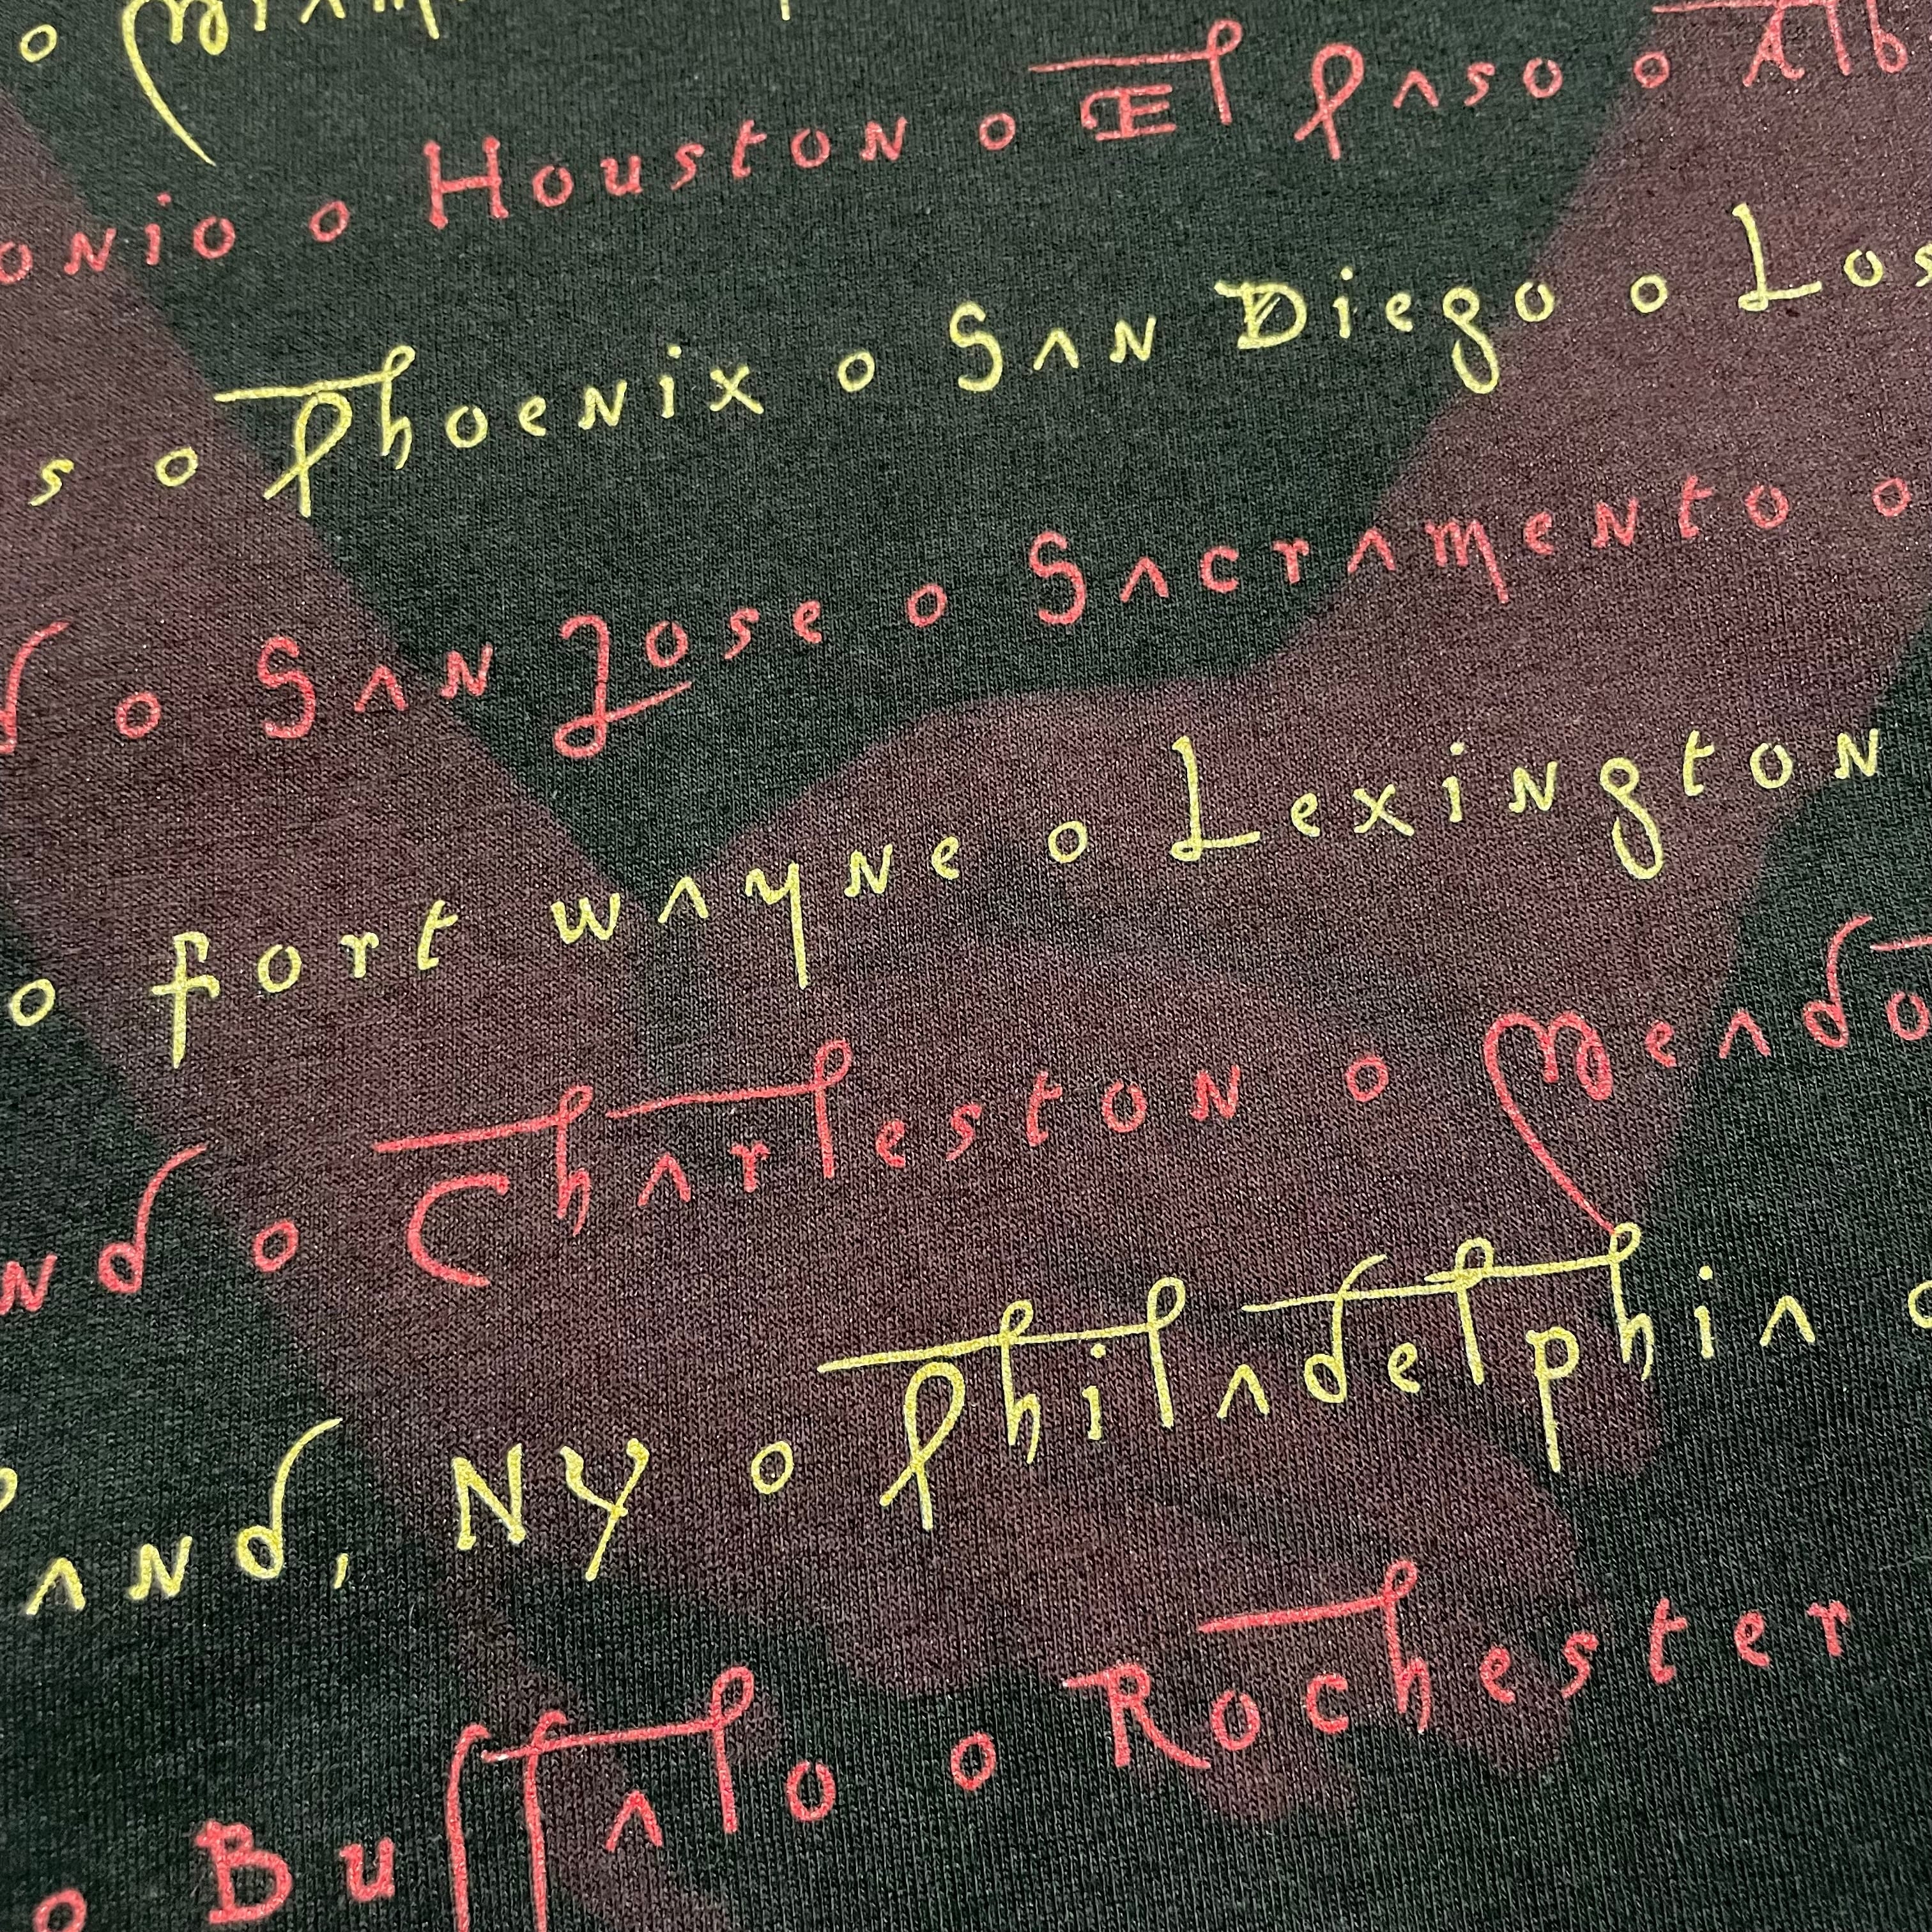 o Miam
onio o Houston o El Paso o Alb
s o Phoenix o San Diego o Los
d o San Jose o Sacramento o
o fort wayne o Lexington
nd o Charleston o Mendo
and, NY o Philadelphia o
o Buffalo o Rochester